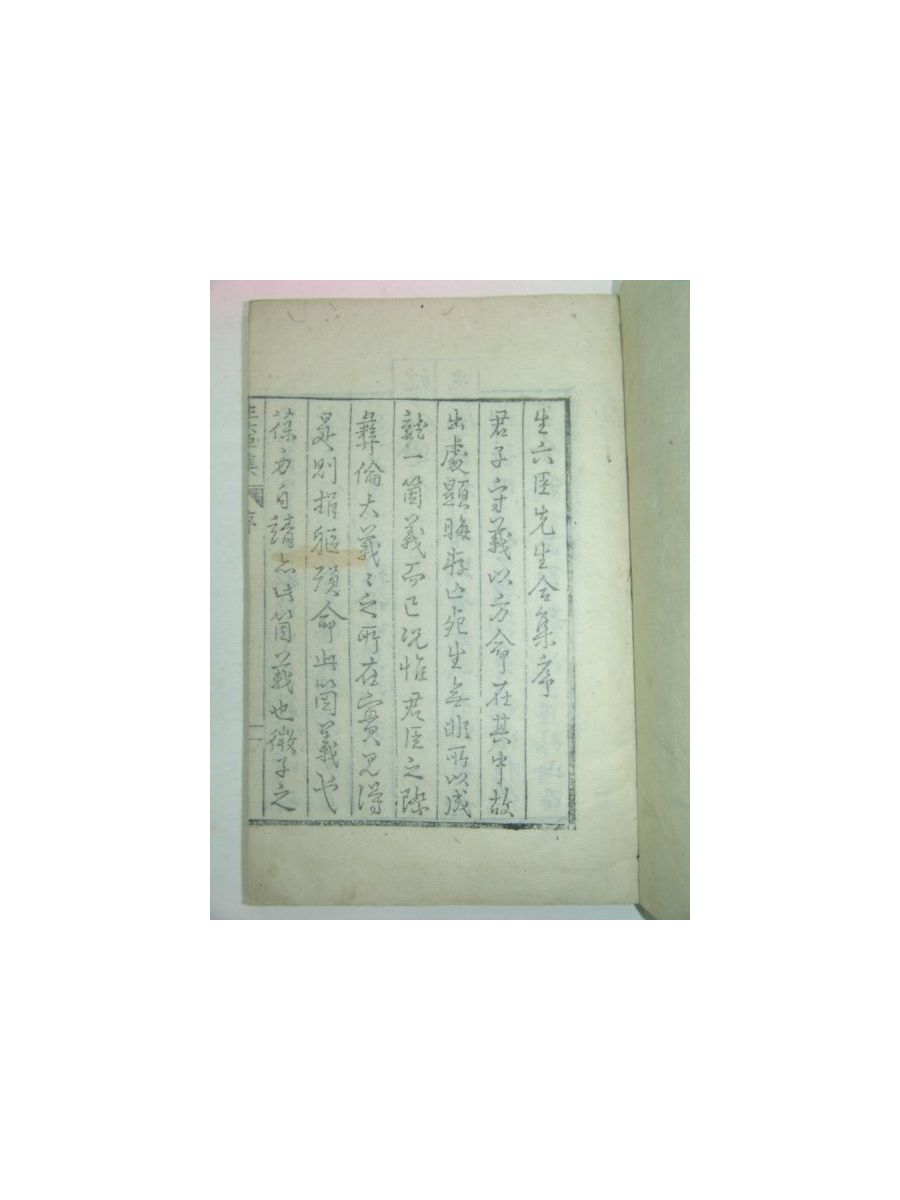 生六臣先生合集序
君子守義以方命在其中故
出處顯晦存亡死生無非所以成
就一箇義而已況惟君臣之際
彝倫大義〻之所在實見得
是則捐軀殞命此箇義也
葆身自靖亦此箇義也微子之
生六臣集
序
一